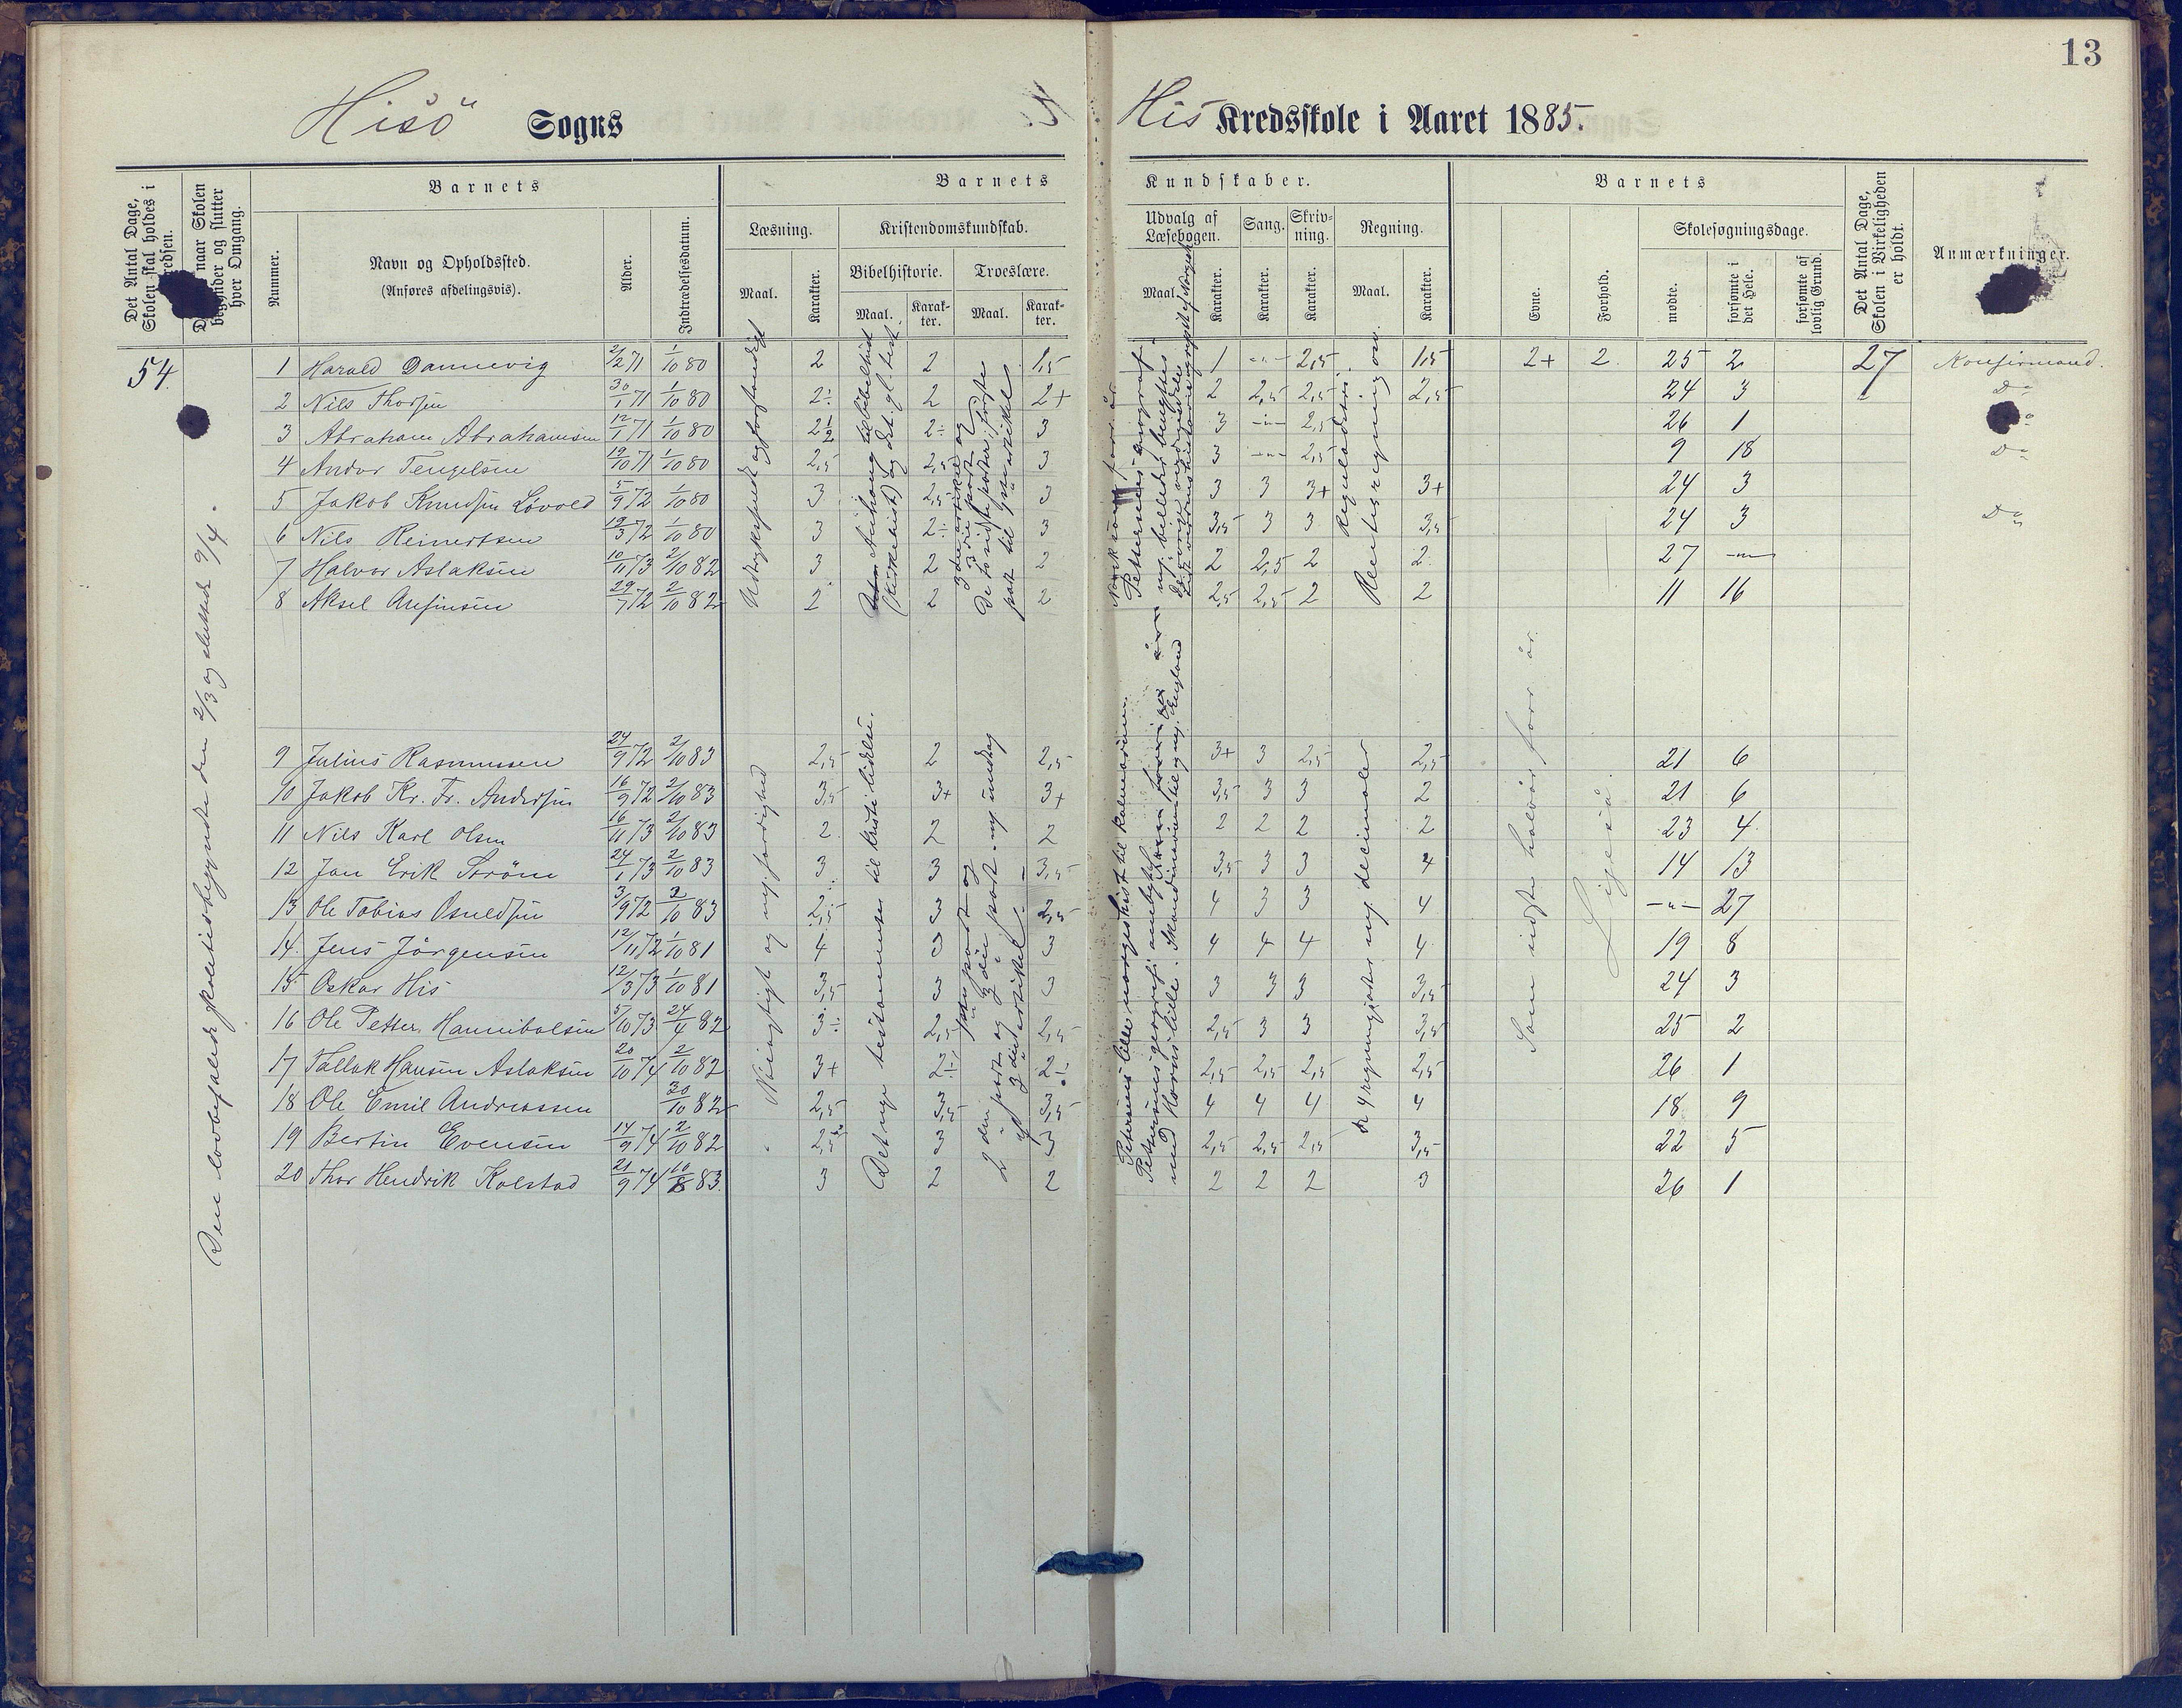 13
Hisö Sogns His Kredsskole i Aaret 1885.
Det Antal Dage, Skolen skal holdes i
naar Skolen begynder og slutter hver Omgang.
Barnets
Nummer.
Navn og Opholdssted.
(Anføres afdelingsvis).
Alder.
Indtrædelsesdatum.
Barnets Kundskaber.
Læsning.
Maal.
Karakter.
Kristendomskundskab.
Bibelhistorie.
Maal.
Karakter.
Troeslære.
Maal.
Karakter.
Udvalg af Læsebogen.
Maal.
Karakter.
Sang.
Karakter.
Skrivning.
Karakter.
Regning.
Maal.
Karakter.
Barnets
Evne.
Forhold.
Skolesøgningsdage.
mødte.
forsømte i det Hele.
forsømte af lovlig Grund.
Det Antal Dage, Skolen i Virkeligheden er holdt.
Anmærkninger.
54
Den lovbefalede skoletid begyndte den 2/3 og sluttede 9/4.
1 Harald Dannevig 2/2 71 1/10 80 2 2 1,5 1 -"- 2,5 1,5 2+ 2 25 2 27 Konfirmand.
2 Nils Thorsen 30/1 71 1/10 80 2÷ 2 2+ 2 2,5 2,5 2,5 24 3 Do
3 Abraham Abrahamsen 12/1 71 1/10 80 2½ 2÷ 3 3 -"- 2,5 26 1
4 Andor Tengelsen 19/10 71 1/10 80 2,5 2,5 3 3 -"- 2,5 9 18 Do
5 Jakob Knudsen Løvold 5/9 72 1/10 80 3 2,5 3 3 3 3+ 3+ 24 3
6 Nils Reinertsen 19/3 72 1/10 80 3 2÷ 3 3,5 3 3 3,5 24 3 Do
7 Halvor Aslaksen 10/11 73 2/10 82 3 2 2 2 2,5 2 2 27 -"-
8 Aksel Arefinsen 29/7 72 2/10 82 2 2 2 2,5 2,5 2 2 11 16
Udtryksfuldt og forstandigt
(Kirkehist) og det. gl. test.
De to sidste poster i første
part til 9de artikel
Regneladstri.
Rentesregning osv.
9 Julius Rasmussen 24/9 72 2/10 83 2,5 2 2,5 3+ 3 2,5 2,5 21 6
10 Jakob Kr. Fr. Andersen 16/9 72 2/10 83 3,5 3+ 3+ 3,5 3 3 2 21 6
11 Nils Karl Olsen 16/11 73 2/10 83 2 2 2 2 2 2 2 23 4
12 Jan Erik Strøm 24/1 73 2/10 83 3 3 3,5 3,5 3 3 4 14 13
13 Ole Tobias Osuldsen 3/9 72 2/10 83 2,5 3 2,5 4 3 3 4 -"- 27
14 Jens Jörgensen 12/11 72 1/10 81 4 3 3 4 4 4 4 19 8
15 Oskar His 12/3 73 1/10 81 3,5 3 3 3 3 3 3,5 24 3
16 Ole Petter Hannibalsen 5/10 73 24/4 82 3÷ 2,5 2,5 2,5 3 3 3,5 25 2
17 Tallak Hansen Aslaksen 20/10 74 2/10 82 3+ 2÷ 2÷ 2,5 2,5 2,5 2,5 26 1
18 Ole Emil Andreassen 30/10 82 2,5 3,5 3,5 4 4 4 4 18 9
19 Bertin Evensen 14/9 74 2/10 82 2,5 3 3 2,5 2,5 2,5 3,5 22 5
20 Thor Hendrik Kolstad 21/9 74 10/8 83 3 2 2 2 2 2 3 26 1
Nöiagtigt og nogenl. færdighed
Det nye testamente til Kristi lidelse.
Petersens lille norgeshist til Kalmarunionen.
De 4 regningsarter m. decimaler
Som sidste halvår forr. år.
Ligeså.